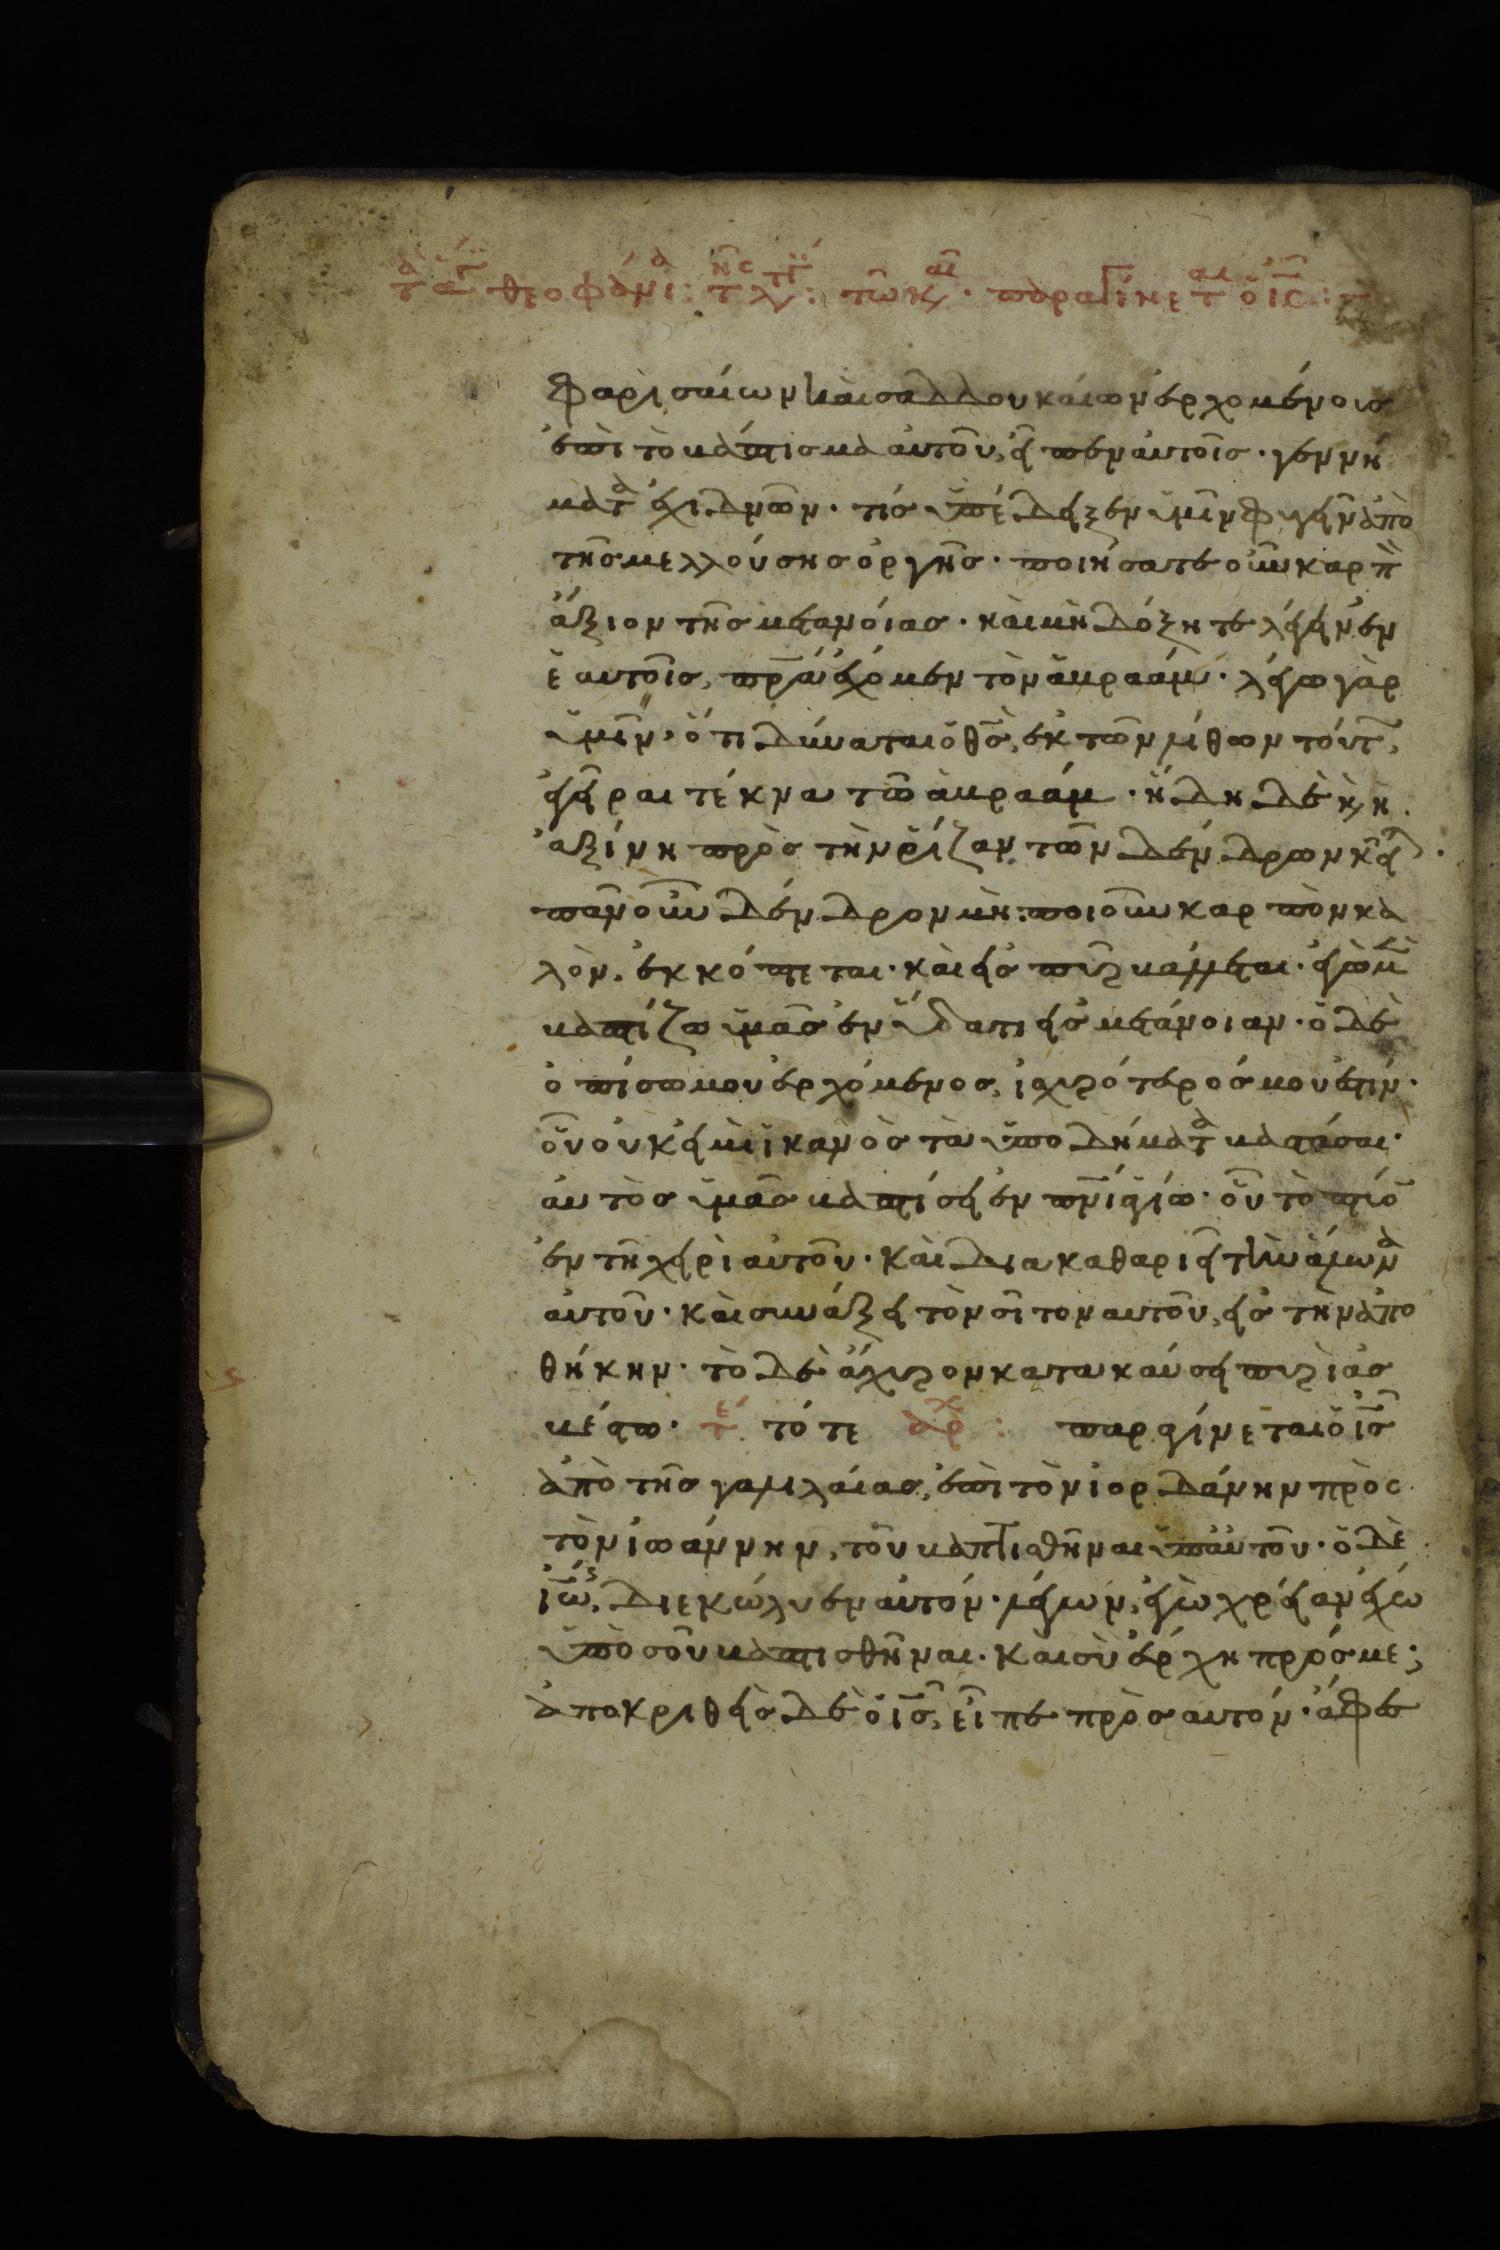 φαρισαίων καὶ σαδδουκαίων ἐρχομένοις
ἐπὶ τὸ βάπτισμα αὐτοῦ, εἶπεν αὐτοῖς· γεννή
ματα ἐχιδνῶν· τίς ὑπέδειξεν ὑμῖν φυγεῖν ἀπὸ
τῆς μελλούσης ὀργῆς· ποιήσατε οὖν καρπὸ
ἄξιον τῆς μετανοίας· καὶ μὴ δόξητε λέγειν ἐν
ἑαυτοῖς, πρα ἔχομεν τὸν ἀβραάμ· λέγω γὰρ
ὑμῖν, ὅτι δύναται ὁ θς, ἐκ τῶν λίθων τούτ,
ἐγεῖραι τέκνα τῶ ἀβραάμ· ἤδη δὲ κ ἡ
ἀξίνη πρὸς τὴν ῥίζαν τῶν δένδρων κεῖται·
πᾶν οὖν δένδρον μὴ ποιοῦν καρπὸν κα
λὸν, ἐκκόπτεται· καὶ εἰς πῦρ βάλλεται· ἐγὼ μὲ
βαπτίζω ὑμᾶς ἐν ὕδατι εἰς μετάνοιαν· ὁ δὲ
ὀπίσω μου ἐρχόμενος, ἰσχυρότερός μου ἐστίν·
οὗ οὐκ εἰμὶ ἱκανὸς τὰ ὑποδήματα βαστάσαι·
αὐτὸς ὑμᾶς βαπτίσει ἐν πνι ἁγίω· οὗ τὸ πτύο
ἐν τῆ χειρὶ αὐτοῦ· καὶ διακαθαριεῖ τὴν ἅλωνα
αὐτοῦ· καὶ συνάξει τὸν σῖτον αὐτοῦ, εἰς τὴν ἀπο
θήκην· τὸ δὲ ἄχυρον κατακαύσει πυρὶ ἀσ
βέστω· τε τότε ἀρχ : παραγίνεται ὁ ις
ἀπὸ τῆς γαλιλαίας, ἐπὶ τὸν ἰορδάνην πρὸς
τὸν ἰωάννην, τοῦ βαπτισθῆναι ὑπ αὐτοῦ· ὁ δὲ
ἰω, διεκώλυεν αὐτόν· λέγων, ἐγὼ χρείαν ἔχω
ὑπὸ σοῦ βαπτισθῆναι· καὶ σὺ ἔρχη πρός με;
ἀποκριθεὶς δὲ ὁ ις, εἶπε πρὸς αὐτόν· ἄφες